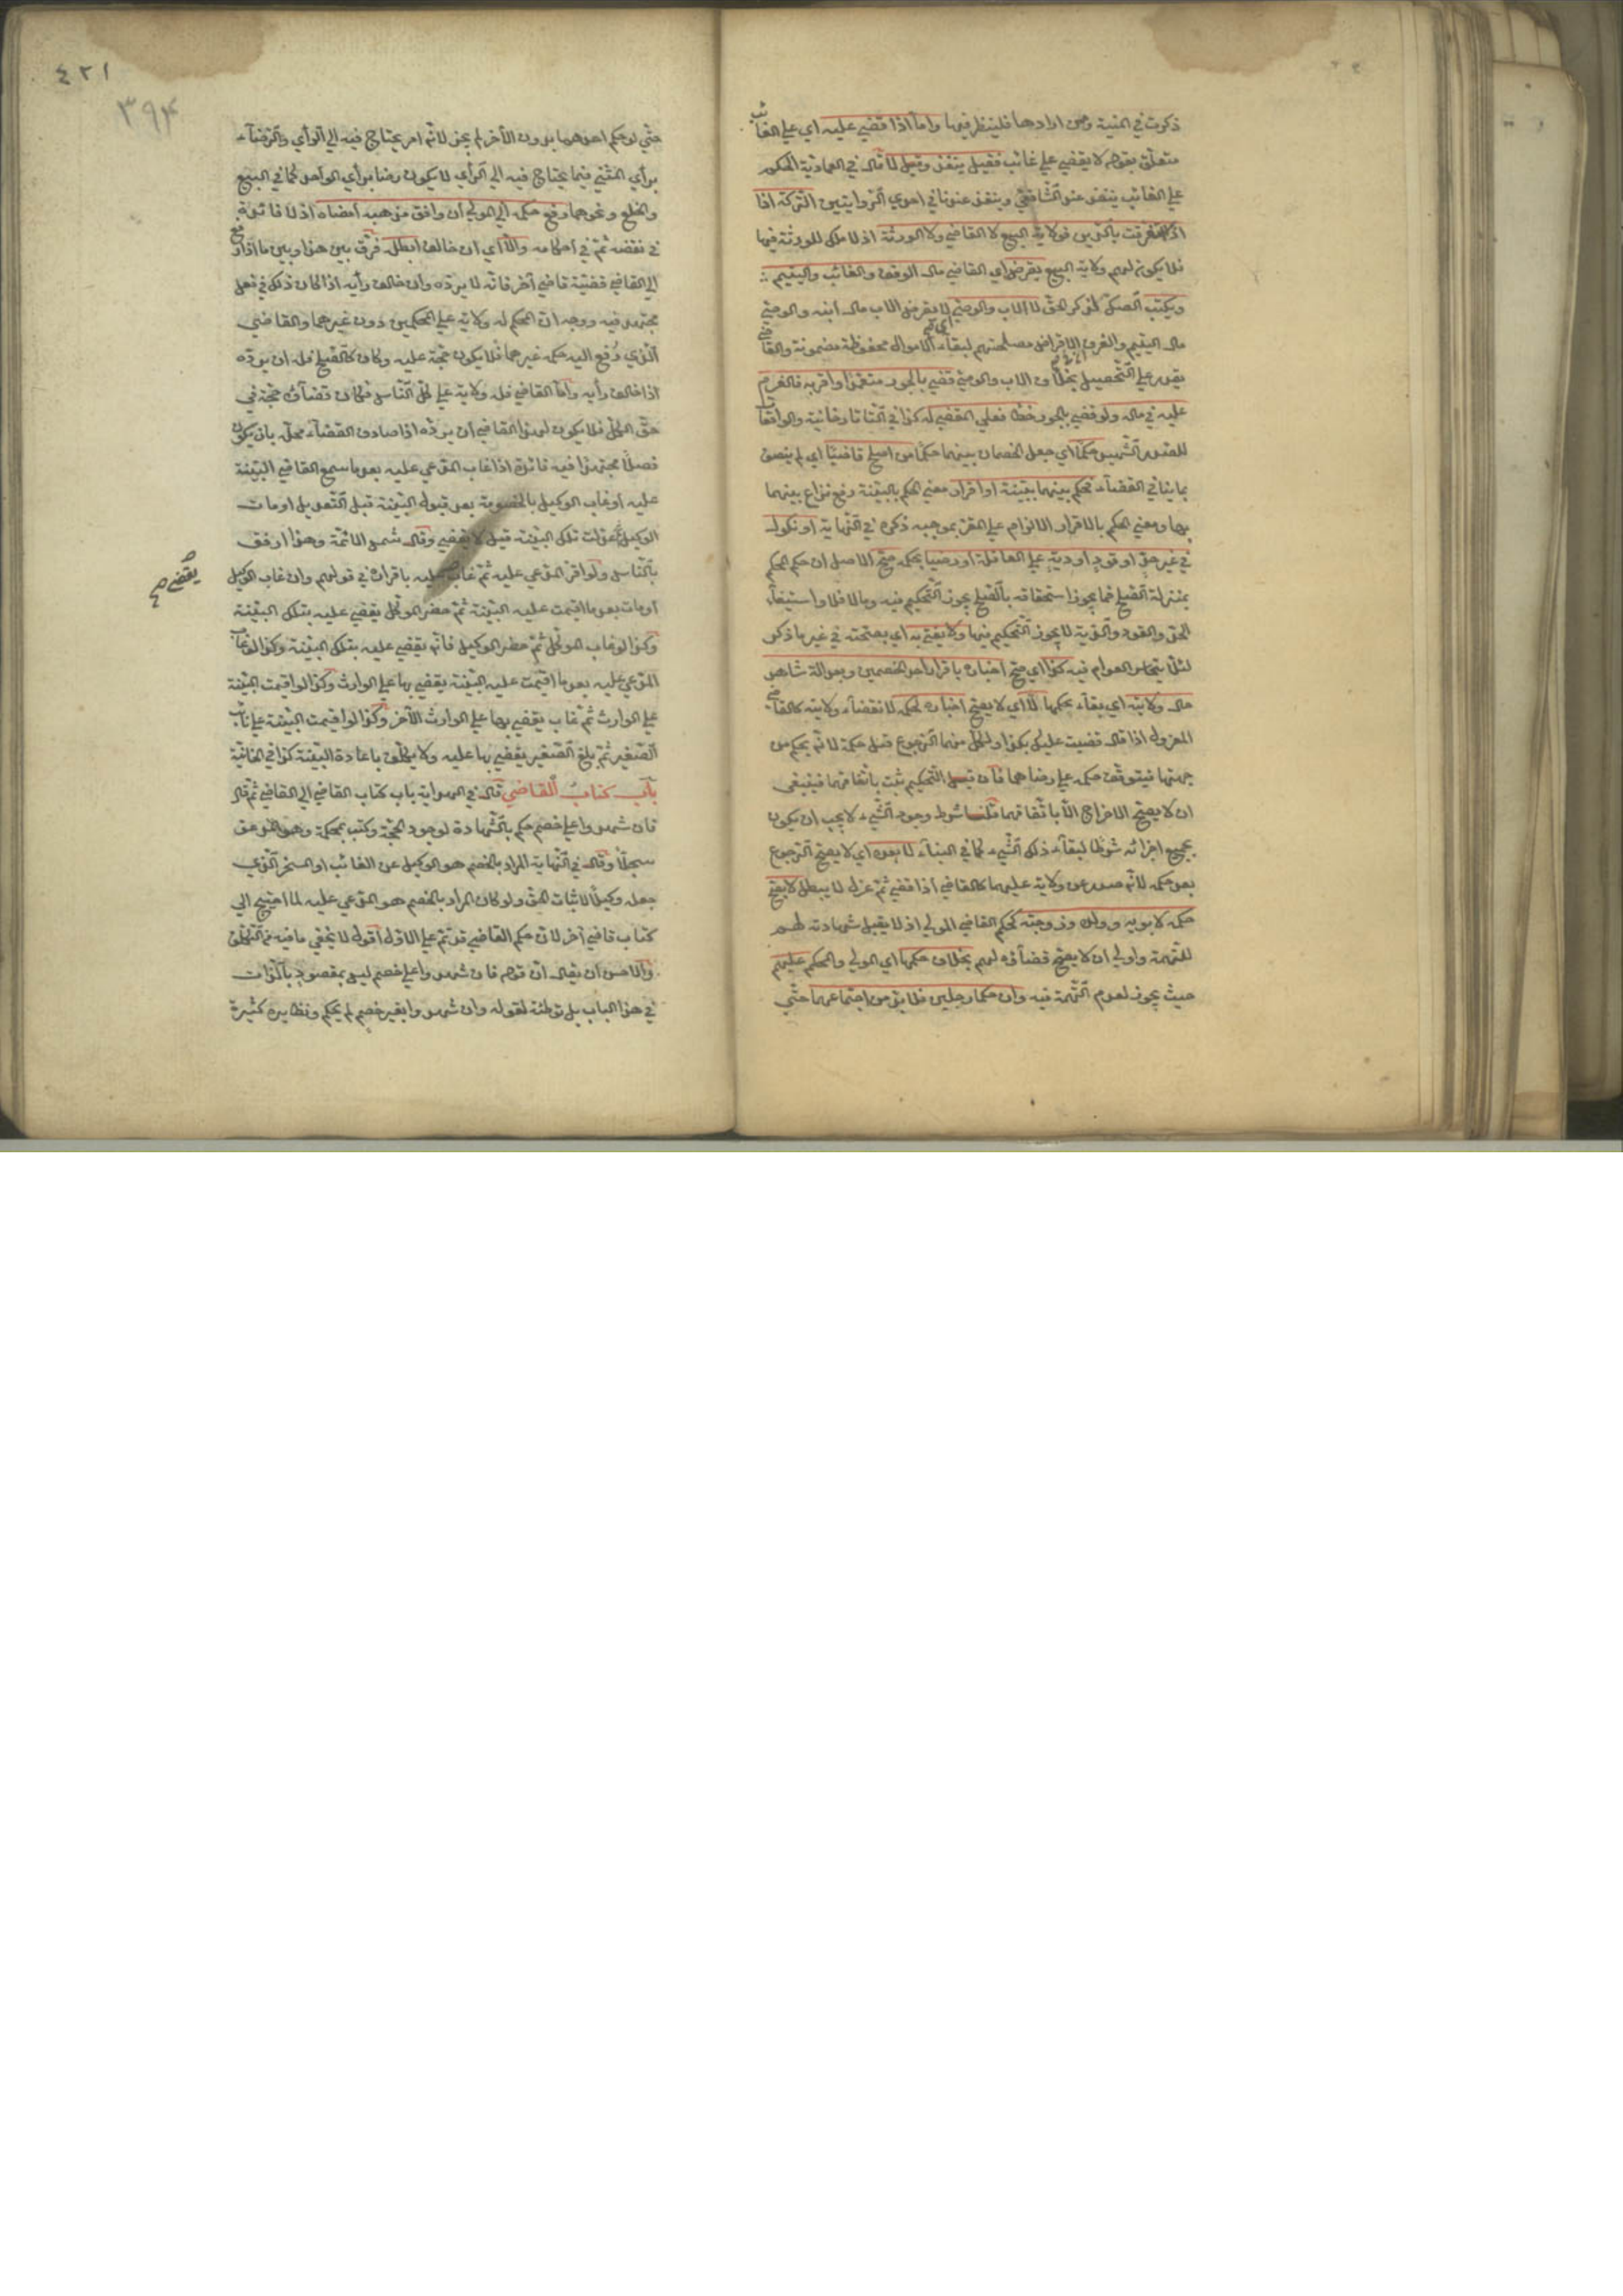 ذكرت في المنية ومن ارادها فلينظر فيها واما اذا قضي عليه اي علي الغائب
متعلق بقوله لا يقضي علي غائب فقيل ينفذ وقيل لا قال في العمادية الحكم
علي الغائب ينفذ عند الشافعي وينفذ عندنا في احدي الروايتين التركة اذا
استغرقت بالدين فولاية البيع للقاضي لا للورثة اذ لا ملك للورثة فيها
فلا يكون لهم ولاية البيع يقرض اي القاضي مال الوقف والغائب واليتيم
ويكتب الصك لذكر الحق لا الاب والوصي اي لا يقرض الاب مال ابنه والوصي
مال اليتيم والفرق ان في الاقراض مصلحتهم لبقاء الاموال محفوظة مضمونة والقاضي
يقدر علي التحصيل بخلاف الاب والوصي قضي بالجور متعمدا واقر به فالغرم
عليه في ماله ولو قضي بالجور خطا فعلي المقضي له كذا في التاتارخانية والواقعات
للصدر الشهيد حكما اي جعل الخصمان بينهما حكما من اصلح قاضيا اي لم يتصف
بما ينافي القضاء فحكم بينهما ببينة او اقرار معني الحكم بالبينة رفع نزاع بينهما
بها ومعني الحكم بالاقرار الالزام علي المقر بموجبه ذكره في النهاية او نكول
في غير حد او قود او دية علي العاقلة او رضيا بحكمه صح الاصل ان حكم المحكم
بمنزلة الصلح فما يجوز استحقاقه بالصلح يجوز التحكيم فيه وما لا فلا واستيفاء
الحد والقود والدية لا يجوز التحكيم فيها ولا يفتي به اي بصحته في غير ما ذكر
لئلا يتجاسر العوام فيه كذا اي صح اخباره باقرار احد الخصمين وبعدالة شاهد
حال ولايته اي بقاء تحكيمهما لا اي لا يصح اخباره بحكمه لانقضاء ولايته كالقاضي
المعزول اذا قال قضيت عليك بكذا ولكل منهما الرجوع قبل حكمه لانه يحكم من
جهتهما فيتوقف حكمه علي رضاهما فان قيل التحكيم يثبت باتفاقهما فينبغي
ان لا يصح الاخراج الا باتفاقهما قلنا شرط وجود الشيء لا يجب ان يكون
بجميع اجزائه شرطا لبقاء ذلك الشيء كما في البناء لا بعده اي لا يصح الرجوع
بعد حكمه لانه صدر عن ولاية عليهما كالقاضي اذا قضي ثم عزل لا يبطل لا يصح
حكمه لابويه وولده وزوجته كحكم القاضي المولي اذ لا يقبل شهادته لهم
للتهمة واولي ان لا يصح قضاؤه لهم بخلاف حكمهما اي المولي والمحكم عليهم
حيث يجوز لعدم التهمة فيه وان حكما رجلين فلا بد من اجتماعهما حتي
٤٢١
٣٩٤
حتي لو حكم احدهما بدون الاخر لم يجز لانه امر يحتاج فيه الي الرأي والرضاء
برأي المثني فيما يحتاج فيه الي الرأي لا يكون رضا برأي الواحد كما في البيع
والخلع ونحوهما رفع حكمه الي المولي ان وافق مذهبه امضاه اذ لا فائدة
في نقضه ثم في احكامه والا اي ان خالف ابطله فرق بين هذا وبين ما اذا رفع
الي القاضي قضية قاضي آخر فانه لا يرده وان خالف رأيه اذا كان ذلك في فصل
مجتهد فيه ووجه ان المحكم له ولاية علي المحكمين دون غيرهما والقاضي
الذي رفع اليه حكمه غيرهما فلا يكون حجة عليه وكان كالصلح فله ان يرده
اذا خالف رأيه واما القاضي فله ولاية علي كل الناس فكان قضاؤه حجة في
حق الكل فلا يكون لهذا القاضي ان يرده اذا صادف القضاء محله بان يكون
فصلا مجتهدا فيه فائدة اذا غاب المدعي عليه بعد ما سمع القاضي البينة
عليه او غاب الوكيل بالخصومة بعد قبول البينة قبل التعديل او مات
الوكيل ثم عدلت تلك البينة قيل لا يقضي وقال شمس الائمة وهذا ارفق
بالناس ولو اقر المدعي عليه ثم غاب عليه باقراره في قولهم وان غاب الوكيل
يقضي صح
او مات بعد ما اقيمت عليه البينة ثم حضر الموكل يقضي عليه بتلك البينة
وكذا لو غاب الموكل ثم حضر الوكيل فانه يقضي عليه بتلك البينة وكذا لو غاب
المدعي عليه بعد ما اقيمت عليه البينة يقضي بها علي الوارث وكذا لو اقيمت البينة
علي الوارث ثم غاب يقضي بها علي الوارث الآخر وكذا لو اقيمت البينة علي نائب
الصغير ثم بلغ الصغير يقضي بها عليه ولا يكلف باعادة البينة كذا في الخانية
باب كتاب القاضي قال في الهداية باب كتاب القاضي الي القاضي ثم قال
فان شهدوا علي خصم حكم بالشهادة لوجود الحجة وكتب بحكمه وهو المدعو
سجلا وقال في النهاية المراد بالخصم هو الوكيل عن الغائب او المسخر الذي
جعله وكيلا لاثبات الحق ولو كان المراد بالخصم هو المدعي عليه لما احتيج الي
كتاب قاضي آخر لان حكم القاضي قد تم علي الاول اقول لا يخفي ما فيه من التكلف
والاحسن ان يقال ان قوله فان شهدوا علي خصم ليس بمقصود بالذات
في هذا الباب بل توطئة لقوله وان شهدوا بغير خصم لم يحكم ونظايره كثيرة